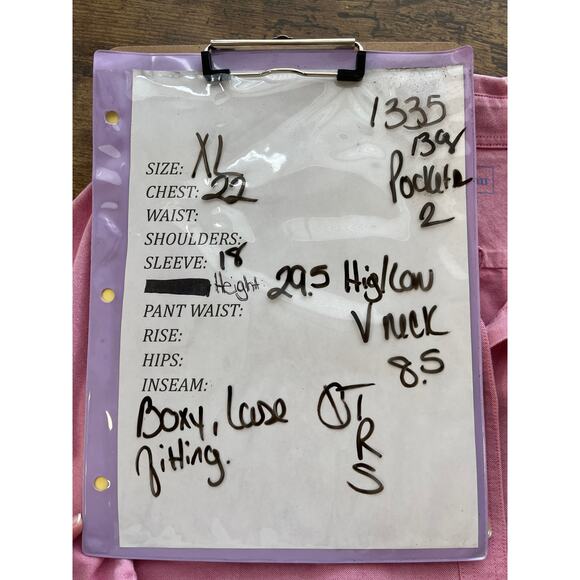 1335
SIZE: XL
Pockets
CHEST: 22
2
WAIST:
SHOULDERS:
SLEEVE: 18
Height: 29.5 Hig/Low
PANT WAIST:
V neck
RISE:
8.5
HIPS:
INSEAM:
Boxy, Lose
fitting.
T
R
S